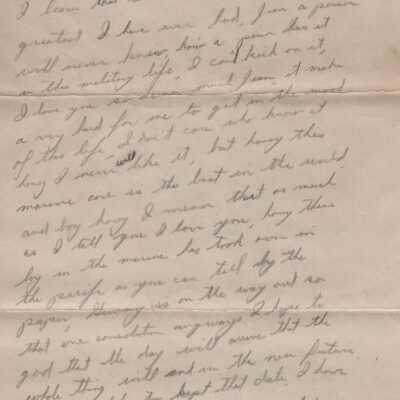 I learn that
greatest I have ever had, I am a
will never know, how a has it
in the melitary life, I can't kick on it,
I love you so much Jean, it make
a very hard for me to get in the mood
of this life, I don't care who know it
hony I never will like it, but hony this
marine core is the best in the world
and boy hony I mean that as much
as I tell you I love you, hony these
boy in the marine has took over in
the pacific as you can tell by the
paper, Germany is on the way out so
that one consolation anyways. I hope to
god that the day will come that the
whole thing will end in the near future
kept that date, I know